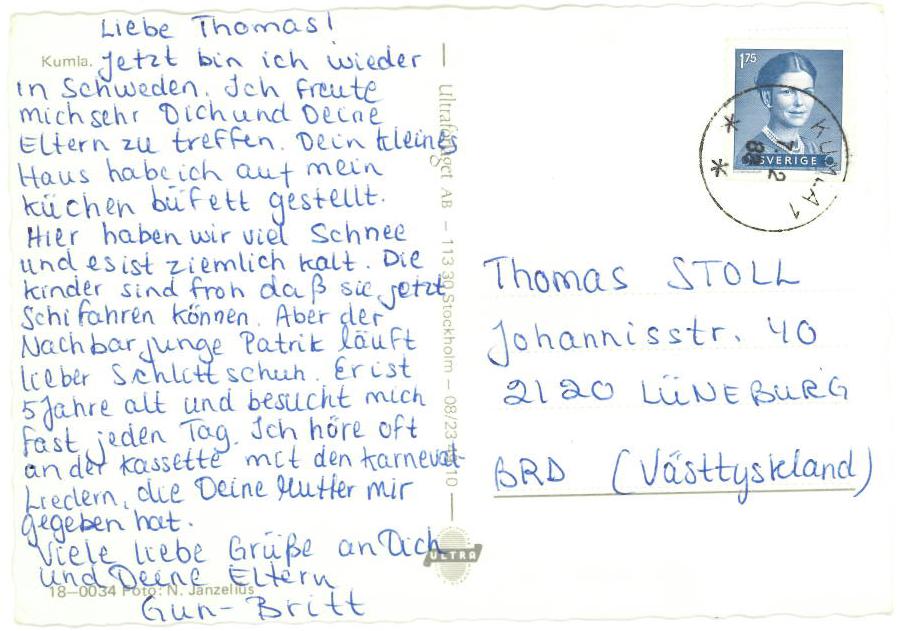 Liebe Thomas!
Kumla. Jetzt bin ich wieder
in Schweden. Ich freute
mich sehr Dich und Deine
Eltern zu treffen. Dein kleines
Haus habe ich auf mein
küchen büfett gestellt.
Hier haben wir viel Schnee
und es ist ziemlich kalt. Die
kinder sind froh daß sie jetzt
Schi fahren können. Aber der
Nachbar junge Patrik läuft
lieber Schlittschuh. Er ist
5 Jahre alt und besucht mich
fast jeden Tag. Ich höre oft
an der Kassette mit den Karneval-
Liedern, die Deine Mutter mir
gegeben hat.
Viele liebe Grüße an Dich
und Deine Eltern
Gun-Britt
18-0034 Foto: N. Janzelius
Ultraförlaget AB – 113 30 Stockholm – 08/23 10
ULTRA
175
SVERIGE
KUMLA 1
2
Thomas STOLL
Johannisstr. 40
2120 LÜNEBURG
BRD (Västtyskland)